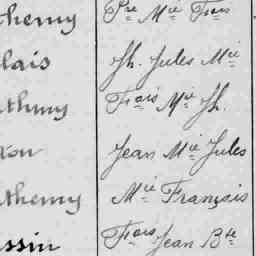 themy Pre Mie Frois
lais Jh. Jules Mie
thmy Frois Mie Jh.
Jean Mie Jules
themy Mie François
ssin Frois Jean Bte